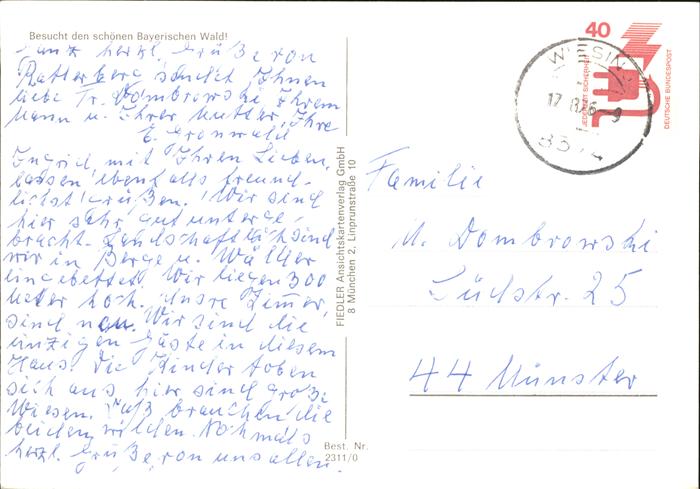 Besucht den schönen Bayerischen Wald!
Ganz herzl. Grüße von
Ratterberg sendet Ihnen
liebe Fr. Dombrowski Ihrem
Mann u. Ihrer Mutter, Ihre
E. Gronwald
Ingrid, mit Ihren Lieben,
lassen ebenfalls freund-
lichst Grüßen. Wir sind
hier sehr gut unterge-
bracht. Landschaftlich sind
wir in Berge u. Wälder
eingebettet. Wir liegen 300
Meter hoch. Unsre Zimmer,
sind neu. Wir sind die
einzigen Gäste in diesem
Haus. Die Kinder toben
sich aus, hier sind große
Wiesen. Das brauchen die
beiden wilden. Nochmals
herzl. Grüße, von uns allen.
FIEDLER Ansichtskartenverlag GmbH
8 München 2, Linprunstraße 10
Best. Nr.
2311/0
40
JEDERZEIT SICHERHEIT
DEUTSCHE BUNDESPOST
17.8.76-9
Familie
M. Dombrowski
Südstr. 25
44 Münster